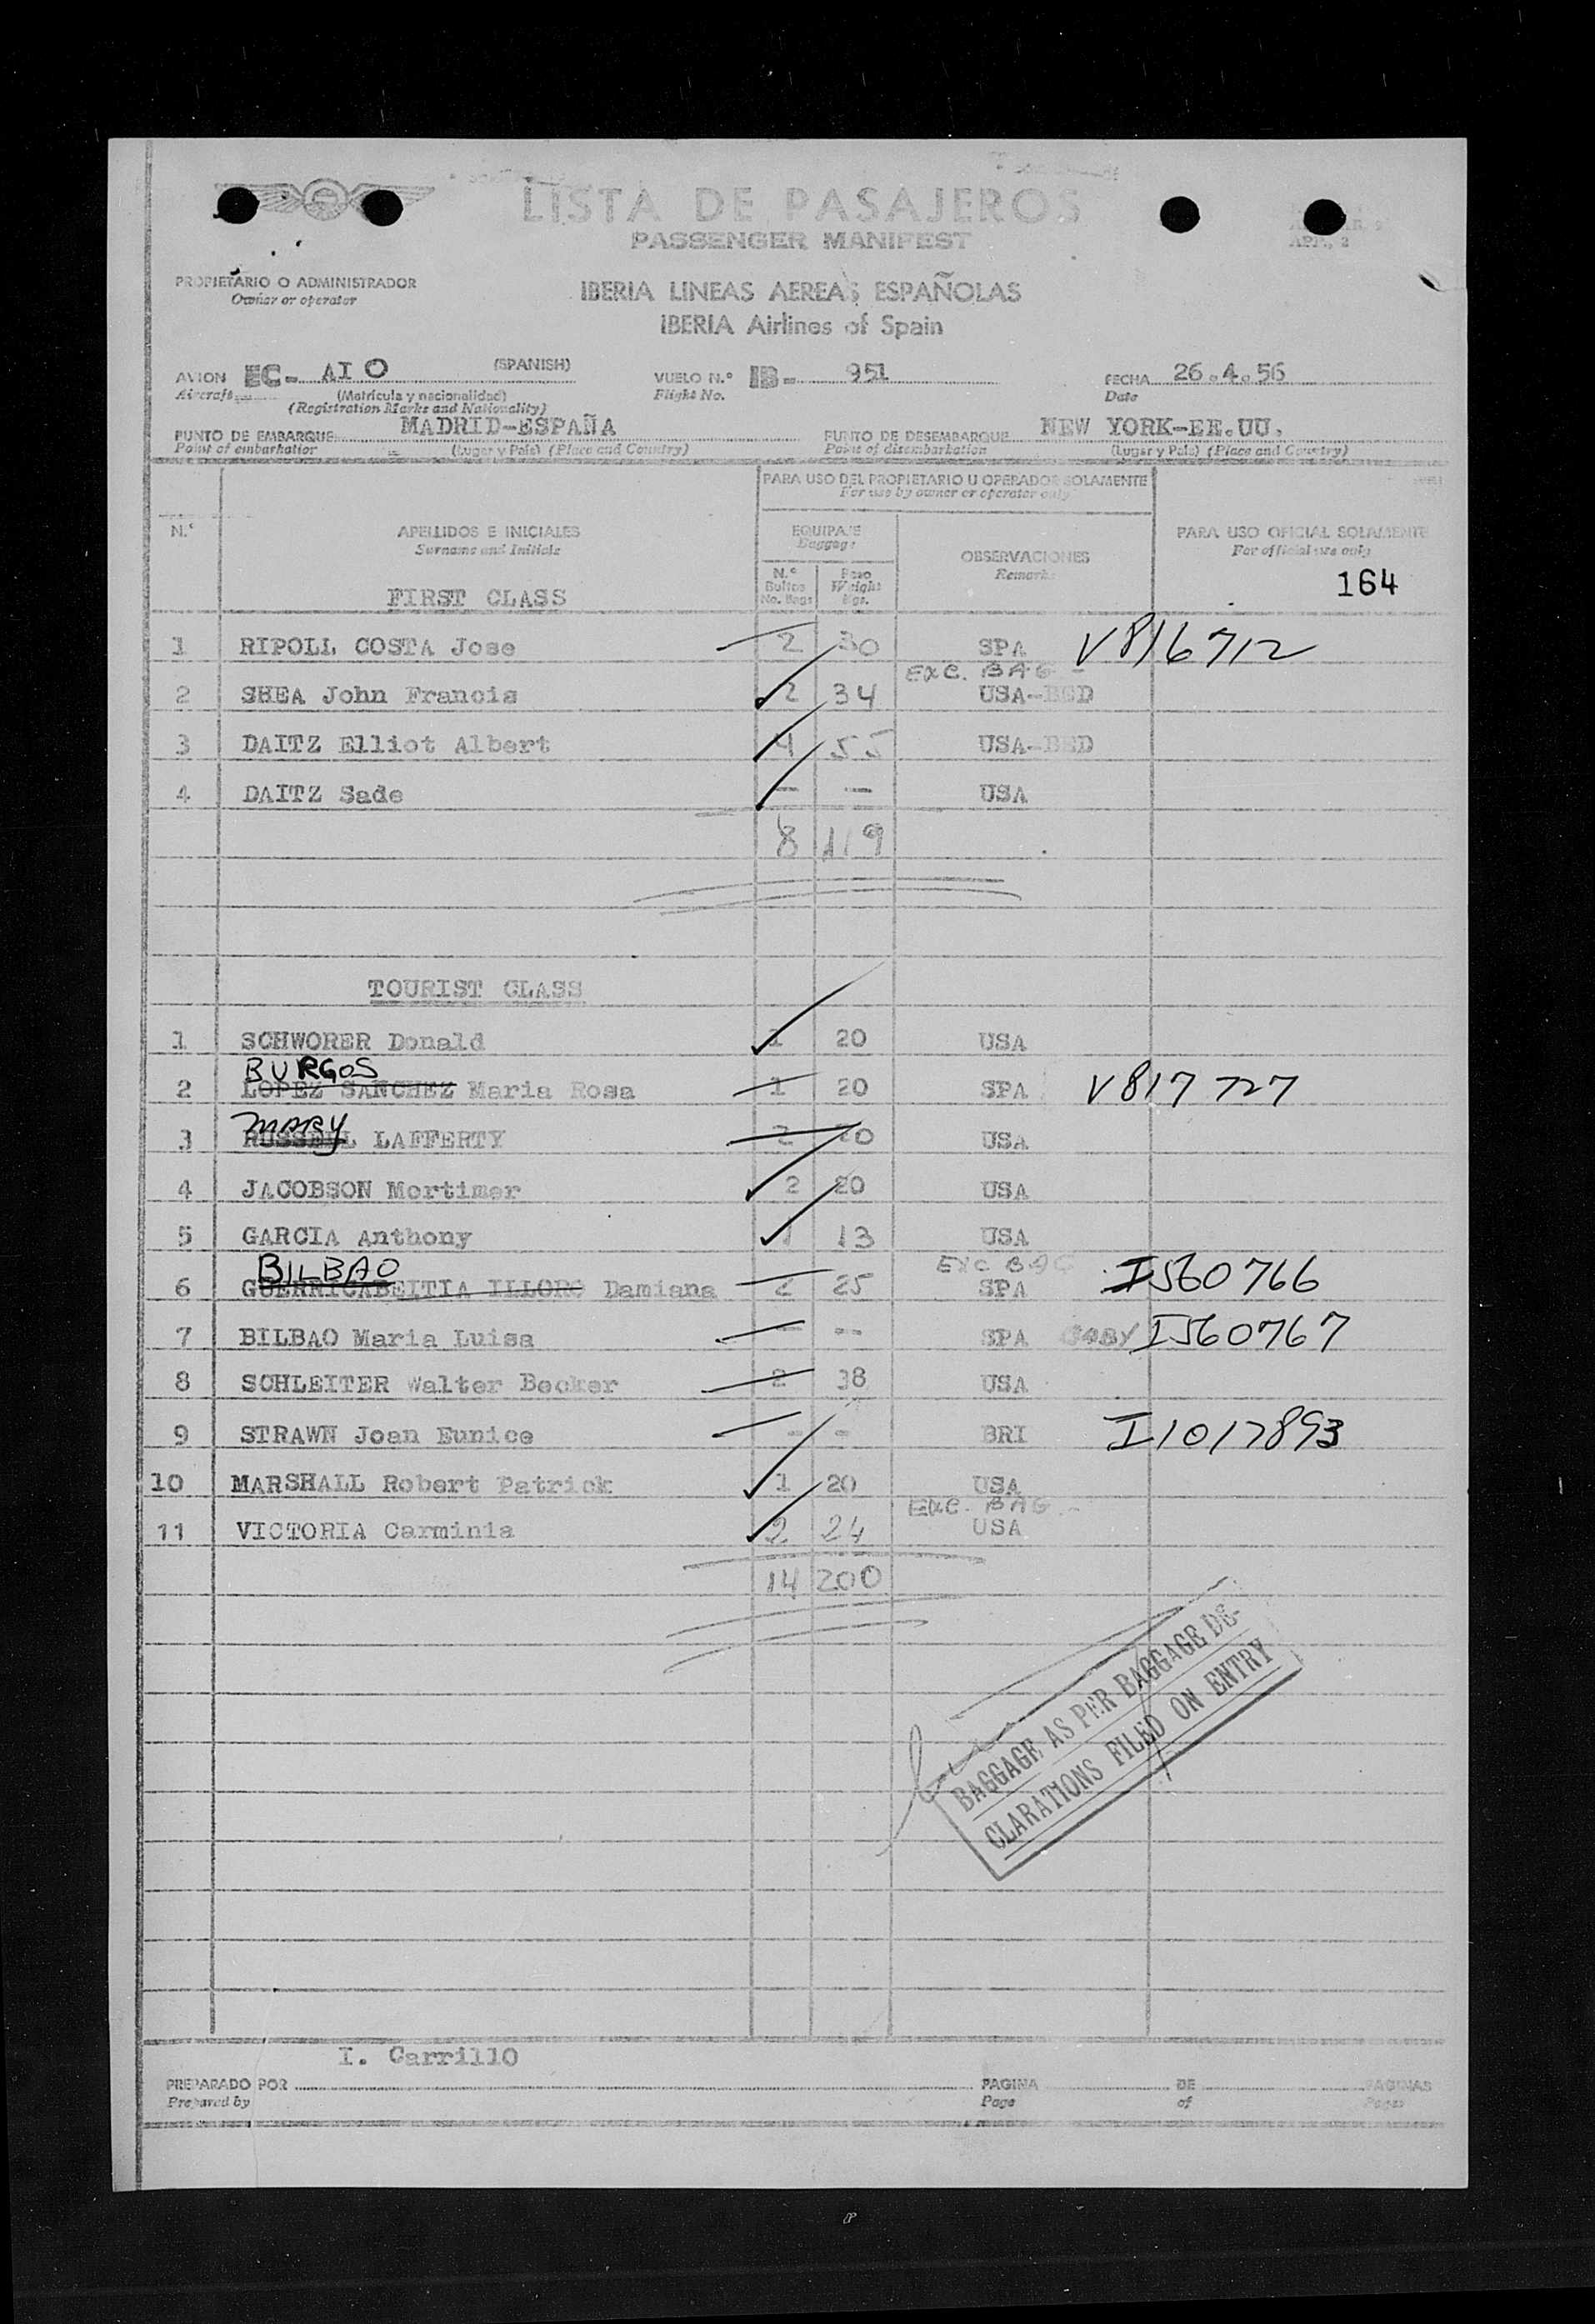 LISTA DE PASAJEROS
PASSENGER MANIFEST
APP., 2
PROPIETARIO O ADMINISTRADOR
Owner or operator
IBERIA LINEAS AEREAS ESPAÑOLAS
IBERIA Airlines of Spain
AVION EC- AIO (SPANISH) VUELO N.º IB- 951 FECHA 26.4.56
Aircraft (Matrícula y nacionalidad) Flight No. Date
(Registration Marks and Nationality)
PUNTO DE EMBARQUE MADRID-ESPAÑA PUNTO DE DESEMBARQUE NEW YORK-EE.UU.
Point of embarkation (Lugar y País) (Place and Country) Point of disembarkation (Lugar y País) (Place and Country)
PARA USO DEL PROPIETARIO U OPERADOR SOLAMENTE
For use by owner or operator only
N.º APELLIDOS E INICIALES EQUIPAJE OBSERVACIONES PARA USO OFICIAL SOLAMENTE
Surname and Initials Baggage Remarks For official use only
N.º Bultos No. Bags Peso Weight Kgs.
164
FIRST CLASS
1 RIPOLL COSTA Jose 2 30 SPA V816712
EXC. BAG -
2 SHEA John Francis 2 34 USA-BED
3 DAITZ Elliot Albert 4 55 USA-BED
4 DAITZ Sade - - USA
8 119
TOURIST CLASS
1 SCHWORER Donald 1 20 USA
BURGOS
2 LOPEZ SANCHEZ Maria Rosa 1 20 SPA V817727
MARY
3 RUSSELL LAFFERTY 2 20 USA
4 JACOBSON Mortimer 2 20 USA
5 GARCIA Anthony 1 13 USA
BILBAO EXC BAG
6 GUERRICABEITIA ILLORO Damiana 2 25 SPA I560766
7 BILBAO Maria Luisa - -- SPA BABY I560767
8 SCHLEITER Walter Becker 2 38 USA
9 STRAWN Joan Eunice - - BRI I1017893
10 MARSHALL Robert Patrick 1 20 USA
EXC. BAG -
11 VICTORIA Carminia 2 24 USA
14 200
BAGGAGE AS PER BAGGAGE DE-
CLARATIONS FILED ON ENTRY
I. Carrillo
PREPARADO POR PAGINA DE PAGINAS
Prepared by Page of Pages